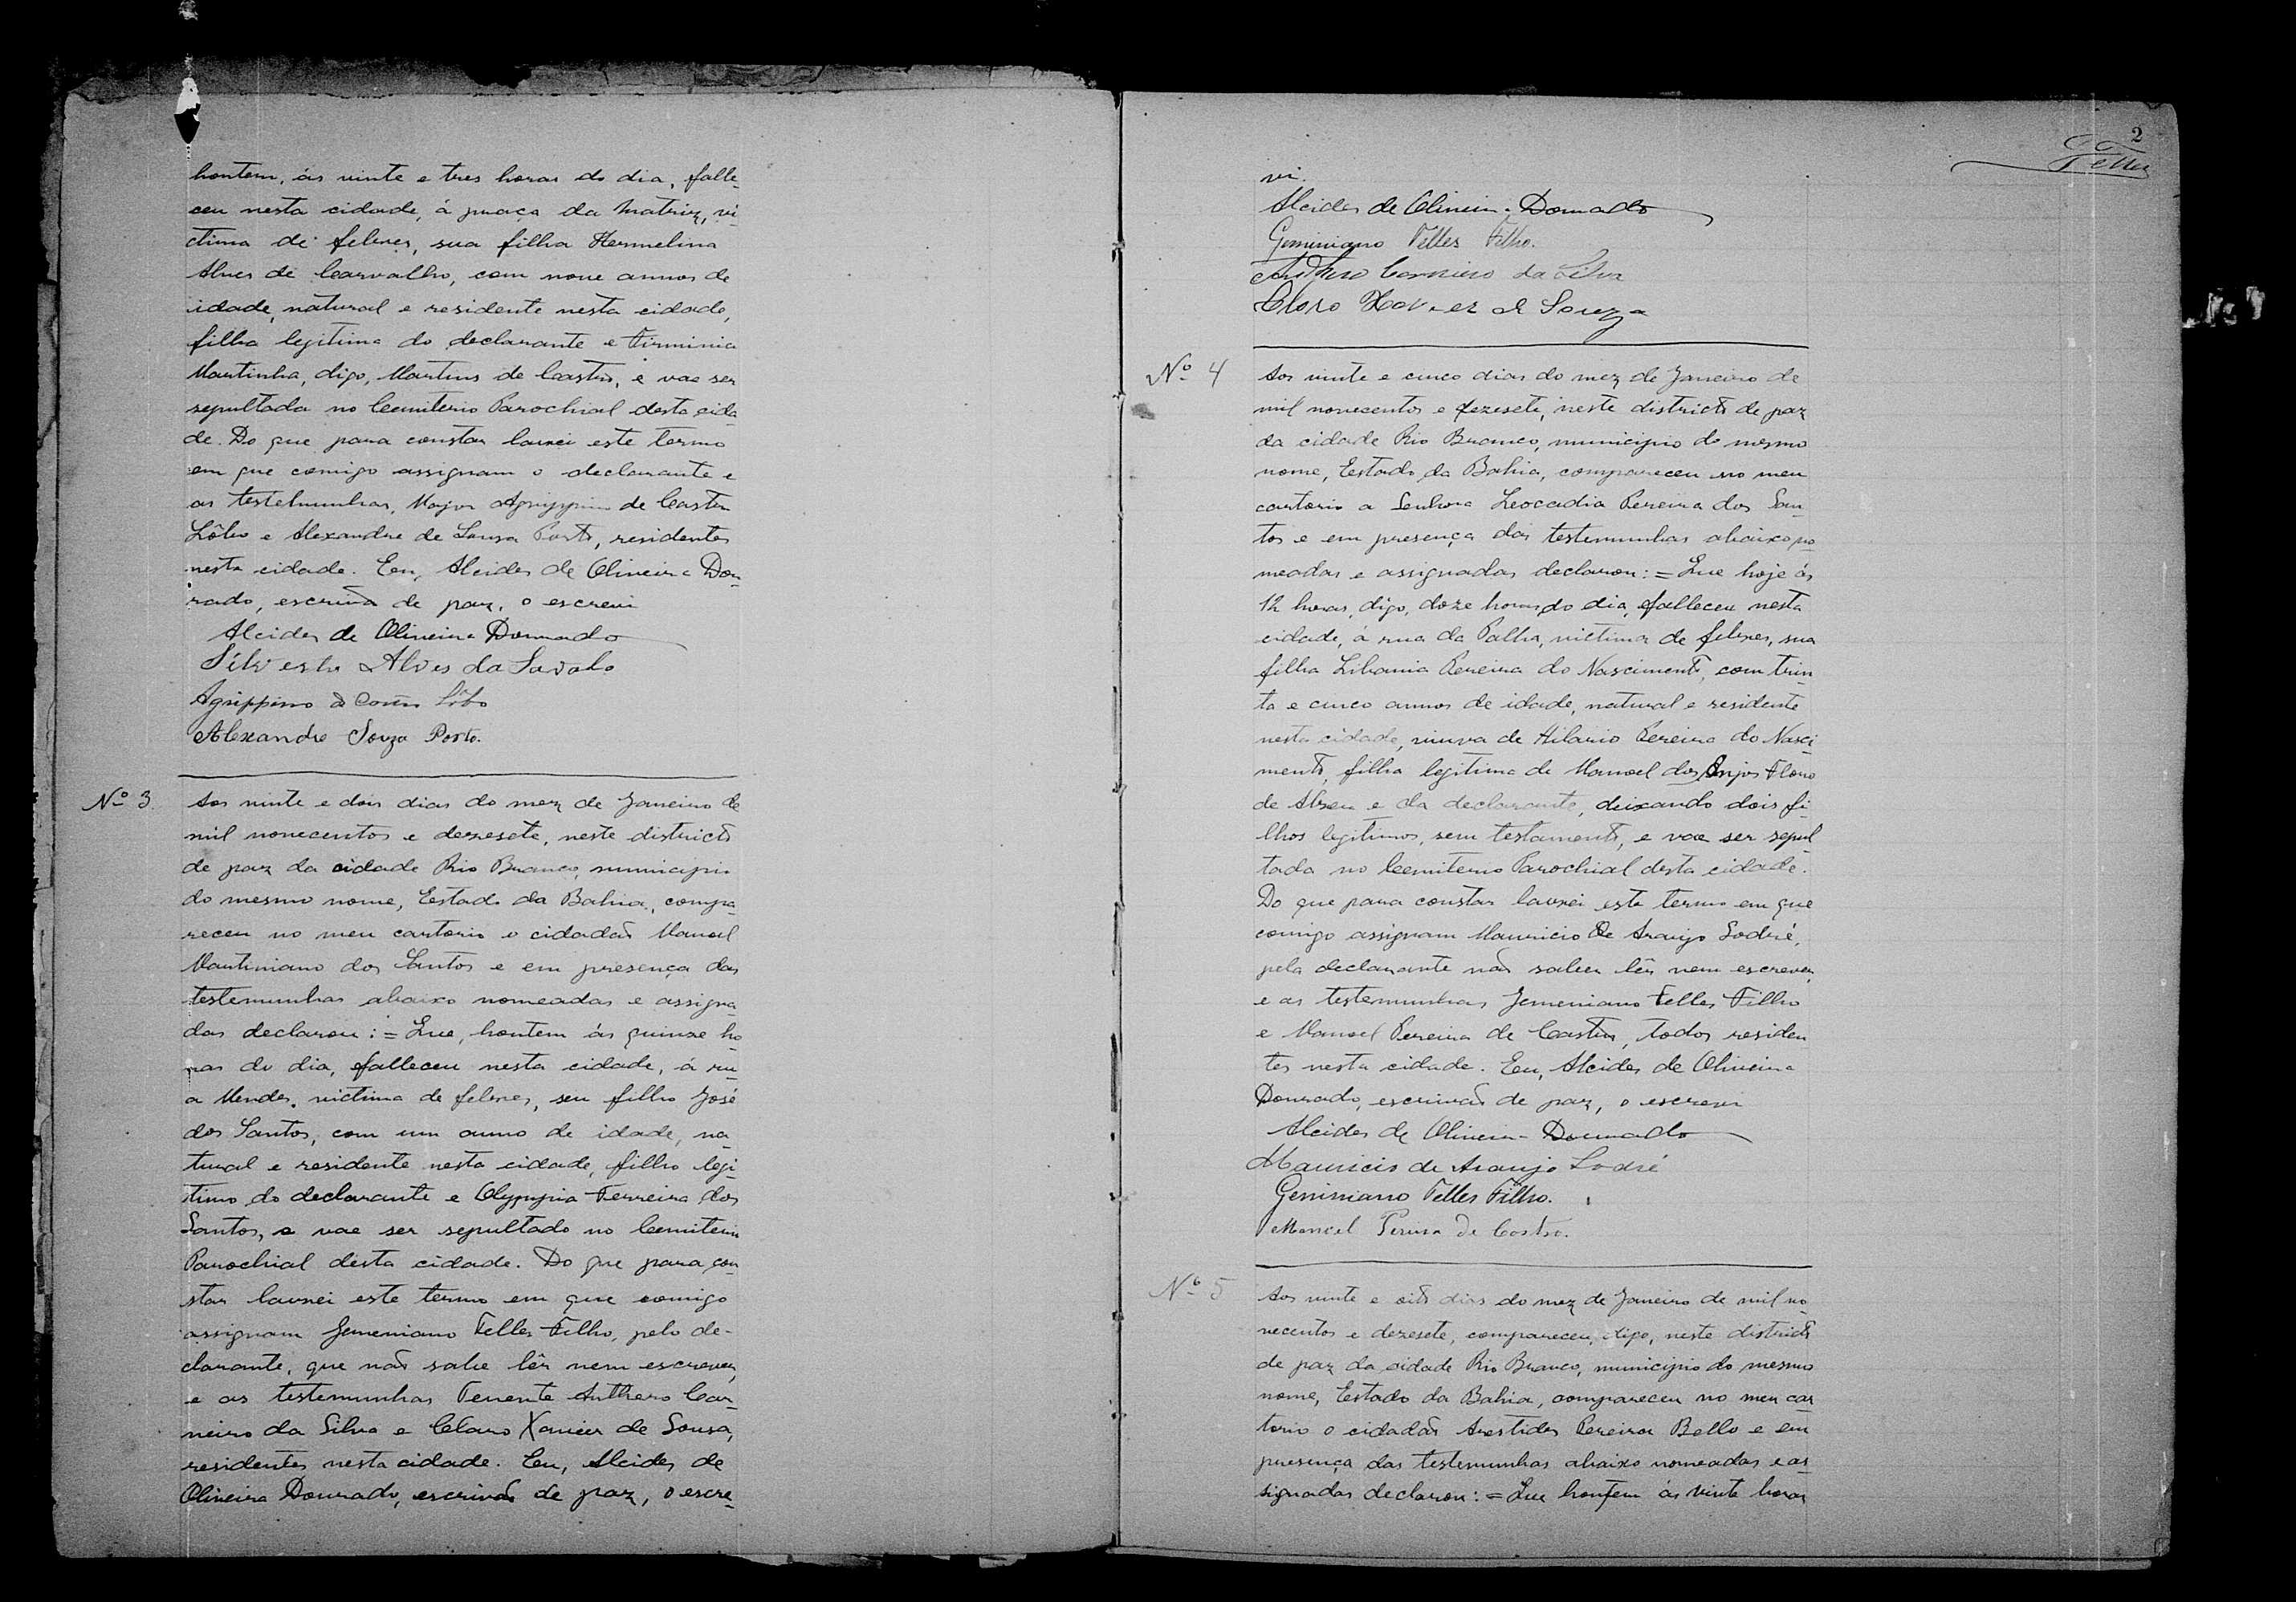 hontem, ás vinte e tres horas do dia, falle-
ceu nesta cidade, á praça da Matriz, vi-
ctima de febres, sua filha Hermelina
Alves de Carvalho, com nove annos de
idade, natural e residente nesta cidade,
filha legitima do declarante e Firminia
Martinha, digo, Martins de Castro, e vae ser
sepultada no Cemiterio Parochial desta cida-
de. Do que para constar lavrei este termo
em que comigo assignam o declarante e
as testehunhas, Major Agrippino de Castro
Lôbo e Alexandre de Sousa Porto, residentes
nesta cidade. Eu, Alcides de Oliveira Dou-
rado, escrivão de paz, o escrevi
Alcides de Oliveira Dourado
Silvestre Alves da
Agrippino de Castro Lôbo
Alexandre Souza Porto.
Nº 3.
Aos vinte e dois dias do mez de Janeiro de
mil novecentos e dezesete, neste districto
de paz da cidade Rio Branco, municipio
do mesmo nome, Estado da Bahia, compa-
receu no meu cartorio o cidadão Manoel
Martiniano dos Santos e em presença das
testemunhas abaixo nomeadas e assigna-
das declarou: = Que, hontem ás quinze ho-
ras do dia, falleceu nesta cidade, á ru-
a Mendes, victima de febres, seu filho José
dos Santos, com um anno de idade, na-
tural e residente nesta cidade, filho legi-
timo do declarante e Olympia Ferreira dos
Santos, e vae ser sepultado no Cemiterio
Parochial desta cidade. Do que para con-
star lavrei este termo em que comigo
assignam Jemeniano Telles Filho, pelo de-
clarante, que não sabe lêr nem escrever,
e as testemunhas Tenente Anthero Car-
neiro da Silva e Claro Xavier de Sousa,
residentes nesta cidade. Eu, Alcides de
Oliveira Dourado, escrivão de paz, o escre-
2
Telles
vi.
Alcides de Oliveira Dourado
Geminiano Telles Filho.
Anthero Carneiro da Silva
Claro Xavier de Souza
Nº 4
Aos vinte e cinco dias do mez de Janeiro de
mil novecentos e dezesete, neste districto de paz
da cidade Rio Branco, municipio do mesmo
nome, Estado da Bahia, compareceu no meu
cartorio a Senhora Leocadia Pereira dos San-
tos e em presença das testemunhas abaixo no-
meadas e assignadas declarou: = Que hoje ás
12 horas, digo, doze horas do dia, falleceu nesta
cidade, á rua da Palha, victima de febres, sua
filha Libania Pereira do Nascimento, com trin-
ta e cinco annos de idade, natural e residente
nesta cidade, viuva de Hilario Pereira do Nasci-
mento, filha legitima de Manoel dos Anjos Floro
de Abreu e da declarante, deixando dois fi-
lhos legitimos, sem testamento, e vae ser sepul-
tada no Cemiterio Parochial desta cidade.
Do que para constar lavrei este termo em que
comigo assignam Mauricio de Araujo Sodré,
pela declarante não saber lêr nem escrever,
e as testemunhas Jemeniano Telles Filho
e Manoel Pereira de Castro, todos residen-
tes nesta cidade. Eu, Alcides de Oliveira
Dourado, escrivão de paz, o escrevi
Alcides de Oliveira Dourado
Mauricio de Araujo Sodré
Geminiano Telles Filho.
Manoel Pereira de Castro.
Nº 5
Aos vinte e oito dias do mez de Janeiro de mil no-
vecentos e dezesete, compareceu, digo, neste districto
de paz da cidade Rio Branco, municipio do mesmo
nome, Estado da Bahia, compareceu no meu car-
torio o cidadão Arestides Pereira Bello e em
presença das testemunhas abaixo nomeadas e as-
signadas declarou: = Que hontem ás vinte horas